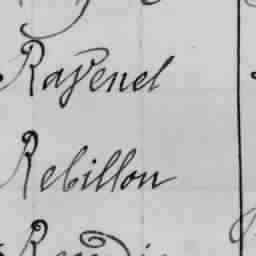 Ravenel
Rebillon